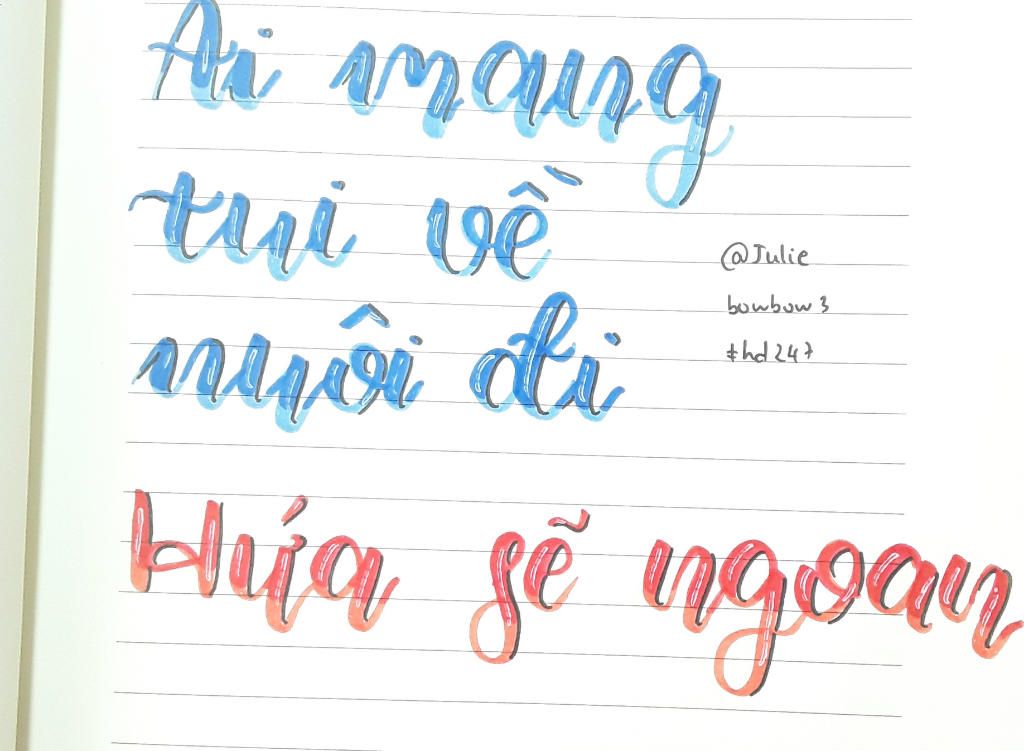 Ai mang
tui về
nuôi đi
@Julie
bowbow3
#hd247
Hứa sẽ ngoan